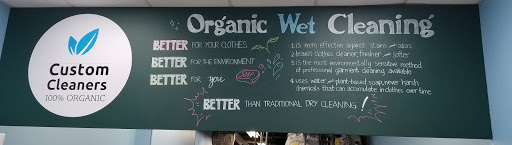 Custom
Cleaners
100% ORGANIC
Organic Wet Cleaning
BETTER FOR YOUR CLOTHES
BETTER FOR THE ENVIRONMENT
BETTER FOR you
SOAP
1. is more effective against stains and odors
2. leaves clothes cleaner, fresher and softer
3. is the most environmentally sensitive method
of professional garment cleaning available
4. uses water and plant-based soap, never harsh
chemicals that can accumulate in clothes over time
BETTER THAN TRADITIONAL DRY CLEANING!